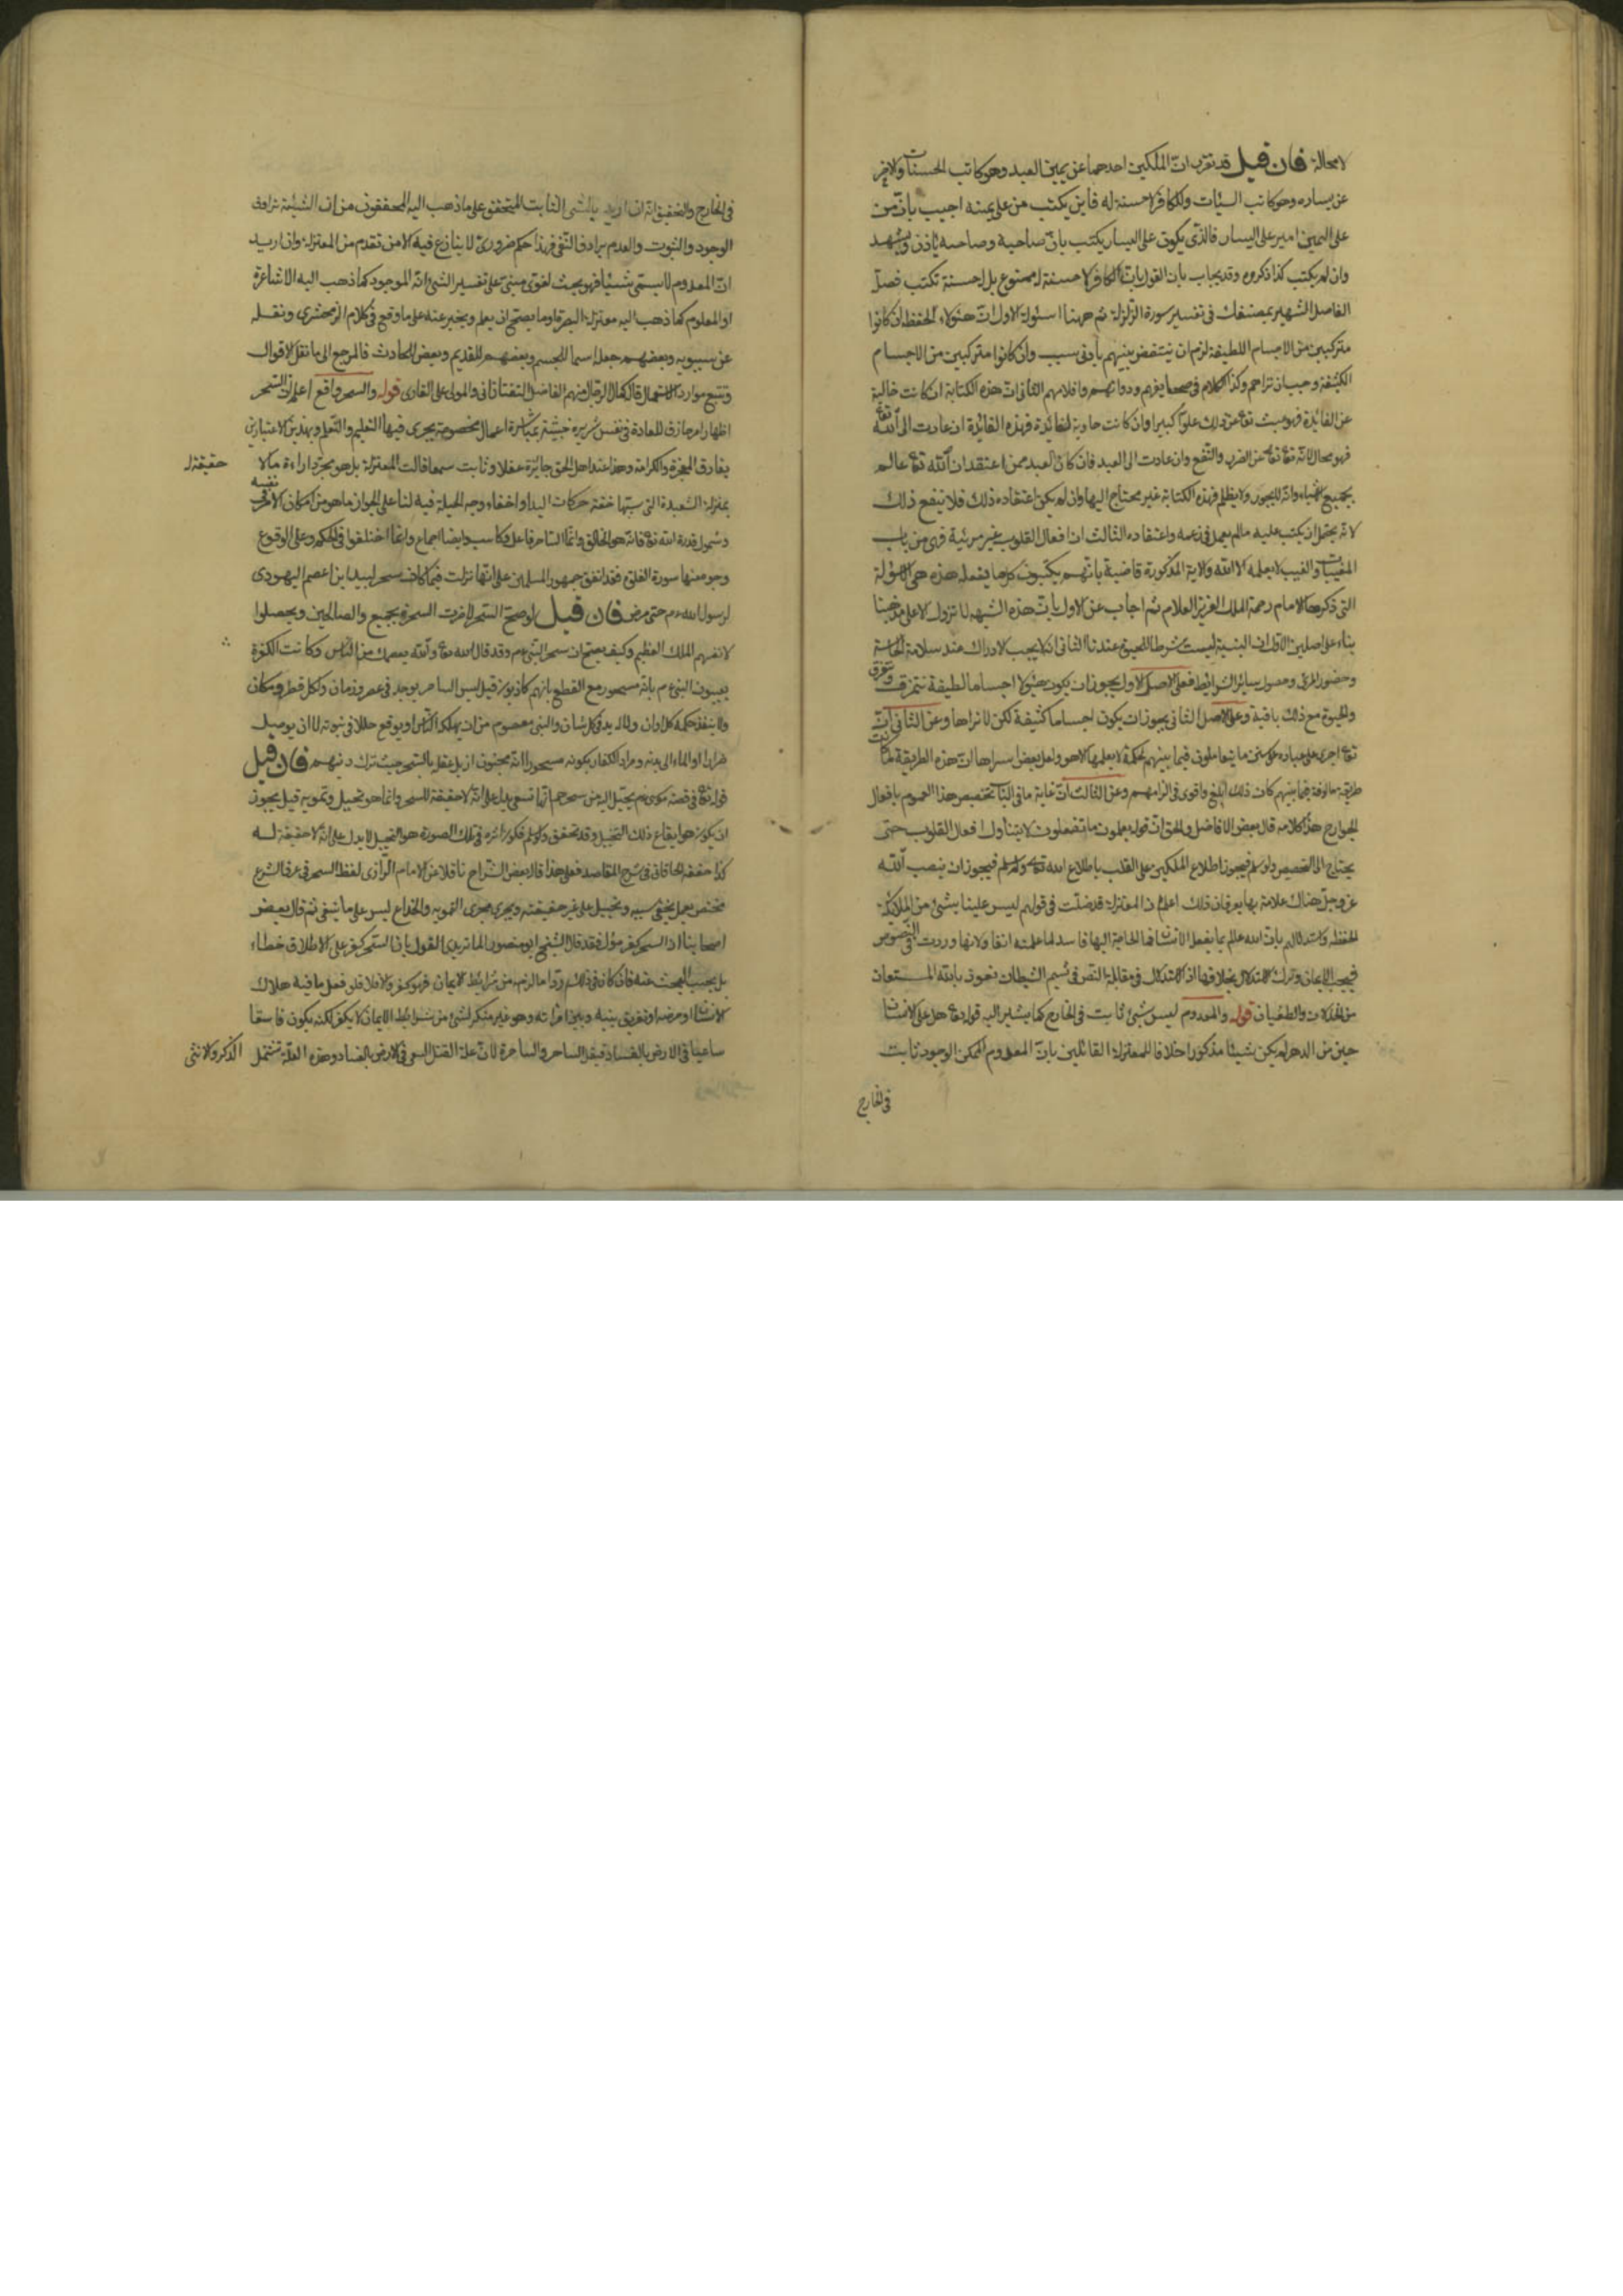 لا محالة فان قيل قد تقرر ان الملكين احدهما عن يمين العبد وهو كاتب الحسنات والاخر
عن يساره وهو كاتب السيئات والكافر لا حسنة له فاين يكتب من على يمينه اجيب بان من
على اليمين امير على اليسار فالذى يكون على اليسار يكتب باذن صاحبه وصاحبه ياذن ويشهد
وان لم يكتب كذا ذكروه وقد يجاب بان القول بان الكافر لا حسنة له ممنوع بل له حسنة تكتب فصل
الفاضل الشهير بمصنفك فى تفسير سورة الزلزلة ثم ههنا اسئولة الاول ان هؤلاء الحفظة ان كانوا
متركبين من الاجسام اللطيفة لزم ان ينتقض بنيتهم بادنى سبب وان كانوا متركبين من الاجسام
الكثيفة وجب ان نراهم وكذا الكلام فى صحفايفهم ودواتهم واقلامهم الثانى ان هذه الكتابة ان كانت خالية
عن الفائدة فهو عبث تع عن ذلك علوا كبيرا وان كانت حاوية لفائدة فهذه الفائدة ان عادت الى الله تع
فهو محال لانه تع عن الضر والنفع وان عادت الى العبد فان كان العبد ممن اعتقد ان الله تع عالم
بجميع الاشياء وانه لا يجور ولا يظلم فهذه الكتابة غير محتاج اليها وان لم يكن اعتقاده ذلك فلا تنفع ذلك
لانه يحتمل ان يكتب عليه ما لم يعمل فى زعمه واعتقاده الثالث ان افعال القلوب غير مرئية فهى من باب
المغيبات والغيب لا يعلمه الا الله والاية المذكورة قاضية بانهم يكتبون كل ما يفعله هذه هى الاسؤلة
التى ذكرها الامام رحمه الملك العزيز العلام ثم اجاب عن الاول بان هذه الشبهة لا تزول الا على مذهبنا
بناء على اصلين الاول ان البنية ليست شرطا للحيوة عندنا الثانى انه لا يجب الادراك عند سلامة الحاسة
وحضور المرئى وحصول سائر الشرائط فعلى الاصل الاول يجوز ان يكون هؤلاء اجساما لطيفة تتمزق وتتفرق
والحيوة مع ذلك باقية وعلى الاصل الثانى يجوز ان يكون اجساما كثيفة لكن لا نراها وعن الثانى ان الله
تع اجرى على عباده على سنن ما يتعاملون فيما بينهم لحكمة لا يعلمها الا هو ولعل بعض اسرارها ان هذه الطريقة لما كانت
طريقة مالوفة فيما بينهم كان ذلك ابلغ واقوى فى الزامهم وعن الثالث ان غاية ما فى الباب تخصيص هذا العموم بافعال
الجوارح هذا كلامه قال بعض الافاضل والحق ان قوله يعلمون ما تفعلون لا يتناول افعال القلوب حتى
يحتاج الى التخصيص ولو سلم فيجوز اطلاع الملكين على القلب باطلاع الله تع ولو سلم فيجوز ان ينصب الله
عز وجل هناك علامة بها يعرفان ذلك اعلم ان المعتزلة قد ضلت فى قولهم ليس علينا بشئ من الملائكة
الحفظة واستدلالهم بان الله عالم بما يفعل الانسان فما الحاجة اليها فاسد لما علمته انفا ولانها وردت فى النصوص
فيجب الايمان وترك الاستدلال بخلافها اذ الاستدلال فى مقابلة النص من شيم الشيطان نعوذ بالله المستعان
من الخذلان والطغيان قوله والمعدوم ليس بشئ ثابت فى الخارج كما يشير اليه قوله تع هل اتى على الانسان
حين من الدهر لم يكن شيئا مذكورا خلافا للمعتزلة القائلين بان المعدوم الممكن الوجود ثابت
فى الخارج
فى الخارج والتحقيق انه ان اريد بالشئ الثابت المتحقق على ما ذهب اليه المحققون من ان الشيئية ترادف
الوجود والثبوت والعدم يرادف النفى فهذا حكم ضرورى لا ينازع فيه الا من تقدم من المعتزلة وان اريد
ان المعدوم لا يسمى شيئا فهو بحث لغوى مبنى على تفسير الشئ انه الموجود كما ذهب اليه الاشاعرة
او المعلوم كما ذهب اليه معتزلة البصرة او ما يصح ان يعلم ويخبر عنه على ما وقع فى كلام الزمخشرى ونقله
عن سيبويه وبعضهم جعله اسما للجسم وبعضهم للقديم وبعض للحادث فالمرجع الى ما نقل الاقوال
وتتبع موارد الاستعمال قال كمال الرجال منهم الفاضل التفتازانى والمولى على القارى قوله والسحر واقع اعلم ان السحر
اظهار امر خارق للعادة فى نفس شريرة خبيثة بمباشرة اعمال مخصوصة يجرى فيها التعليم والتعلم وبهذين الاعتبارين
يفارق المعجزة والكرامة وهذا عند اهل الحق جائزة عقلا وثابت سمعا قالت المعتزلة بل هو مجرد اراءة ما لا حقيقة له
بمنزلة الشعبدة التى سببها خفة حركات اليد او اخفاء وجه الحيلة فيه لنا على الجواز ما هو من امكان الامر فى نفسه
وشمول قدرة الله تع فانه هو الخالق وانما الساحر فاعل وكاسب وايضا اجماع وانما اختلفوا فى الحكم وعلى الوقوع
وجوه منها سورة الفلق فقد اتفق جمهور المسلمين على انها نزلت فيما كان سحر لبيد ابن اعصم اليهودى
لرسول الله عم حتى مرض فان قيل لو صح السحر لاضرت السحرة بجميع والصالحين ويحصلوا
لانفسهم الملك العظيم وكيف يصح ان سحر النبى عم وقد قال الله تع والله يعصمك من الناس وكانت الكفرة
يعيبون النبى عم بانه مسحور مع القطع بانهم كاذبون قيل ليس الساحر يوجد فى عصر وزمان ولكل قطر ومكان
ولا ينفذ حكمه كل اوان ولا له يد فى كل شان والنبى معصوم من ان يهلكه الناس او يوقع خللا فى نبوته لا ان يوصل
ضررا او الما الى بدنه ومراد الكفار بكونه مسحورا انه مجنون ازيل عقله بالسحر حيث ترك دينهم فان قيل
قوله تع فى قصة موسى عم يخيل اليه من سحرهم انها تسعى يدل على انه لا حقيقة للسحر وانما هو تخييل وتمويه قيل يجوز
ان يكون سحرهم ايقاع ذلك التخييل وقد تحقق ولو سلم فكون اثره فى تلك الصورة هو التخييل لا يدل على انه لا حقيقة له
كذا حققه الخاقانى فى شرح المقاصد فعلى هذا قال بعض الشراح ناقلا عن الامام الرازى لفظ السحر فى عرف الشرع
مختص بعمل يخفى سببه ويخيل على غير حقيقته ويجرى مجرى التمويه والخداع ليس على ما ينبغى ثم قال بعض
اصحابنا ان السحر كفر مؤل فقد قال الشيخ ابو منصور الماتريدى القول بان السحر كفر على الاطلاق خطاء
بل يجب البحث عنه فان كان فى ذلك رد ما لزمه من شرايط الايمان فهو كفر والا فلا فلو فعل ما فيه هلاك
الانسان او مرضه او تفريق بينه وبين امراته وهو غير منكر لشئ من شرايط الايمان لا يكفر لكنه يكون فاسقا
ساعيا فى الارض بالفساد فيقتل الساحر والساحرة لان علة القتل السعى فى الارض بالفساد وهذه العلة تشتمل الذكر والانثى